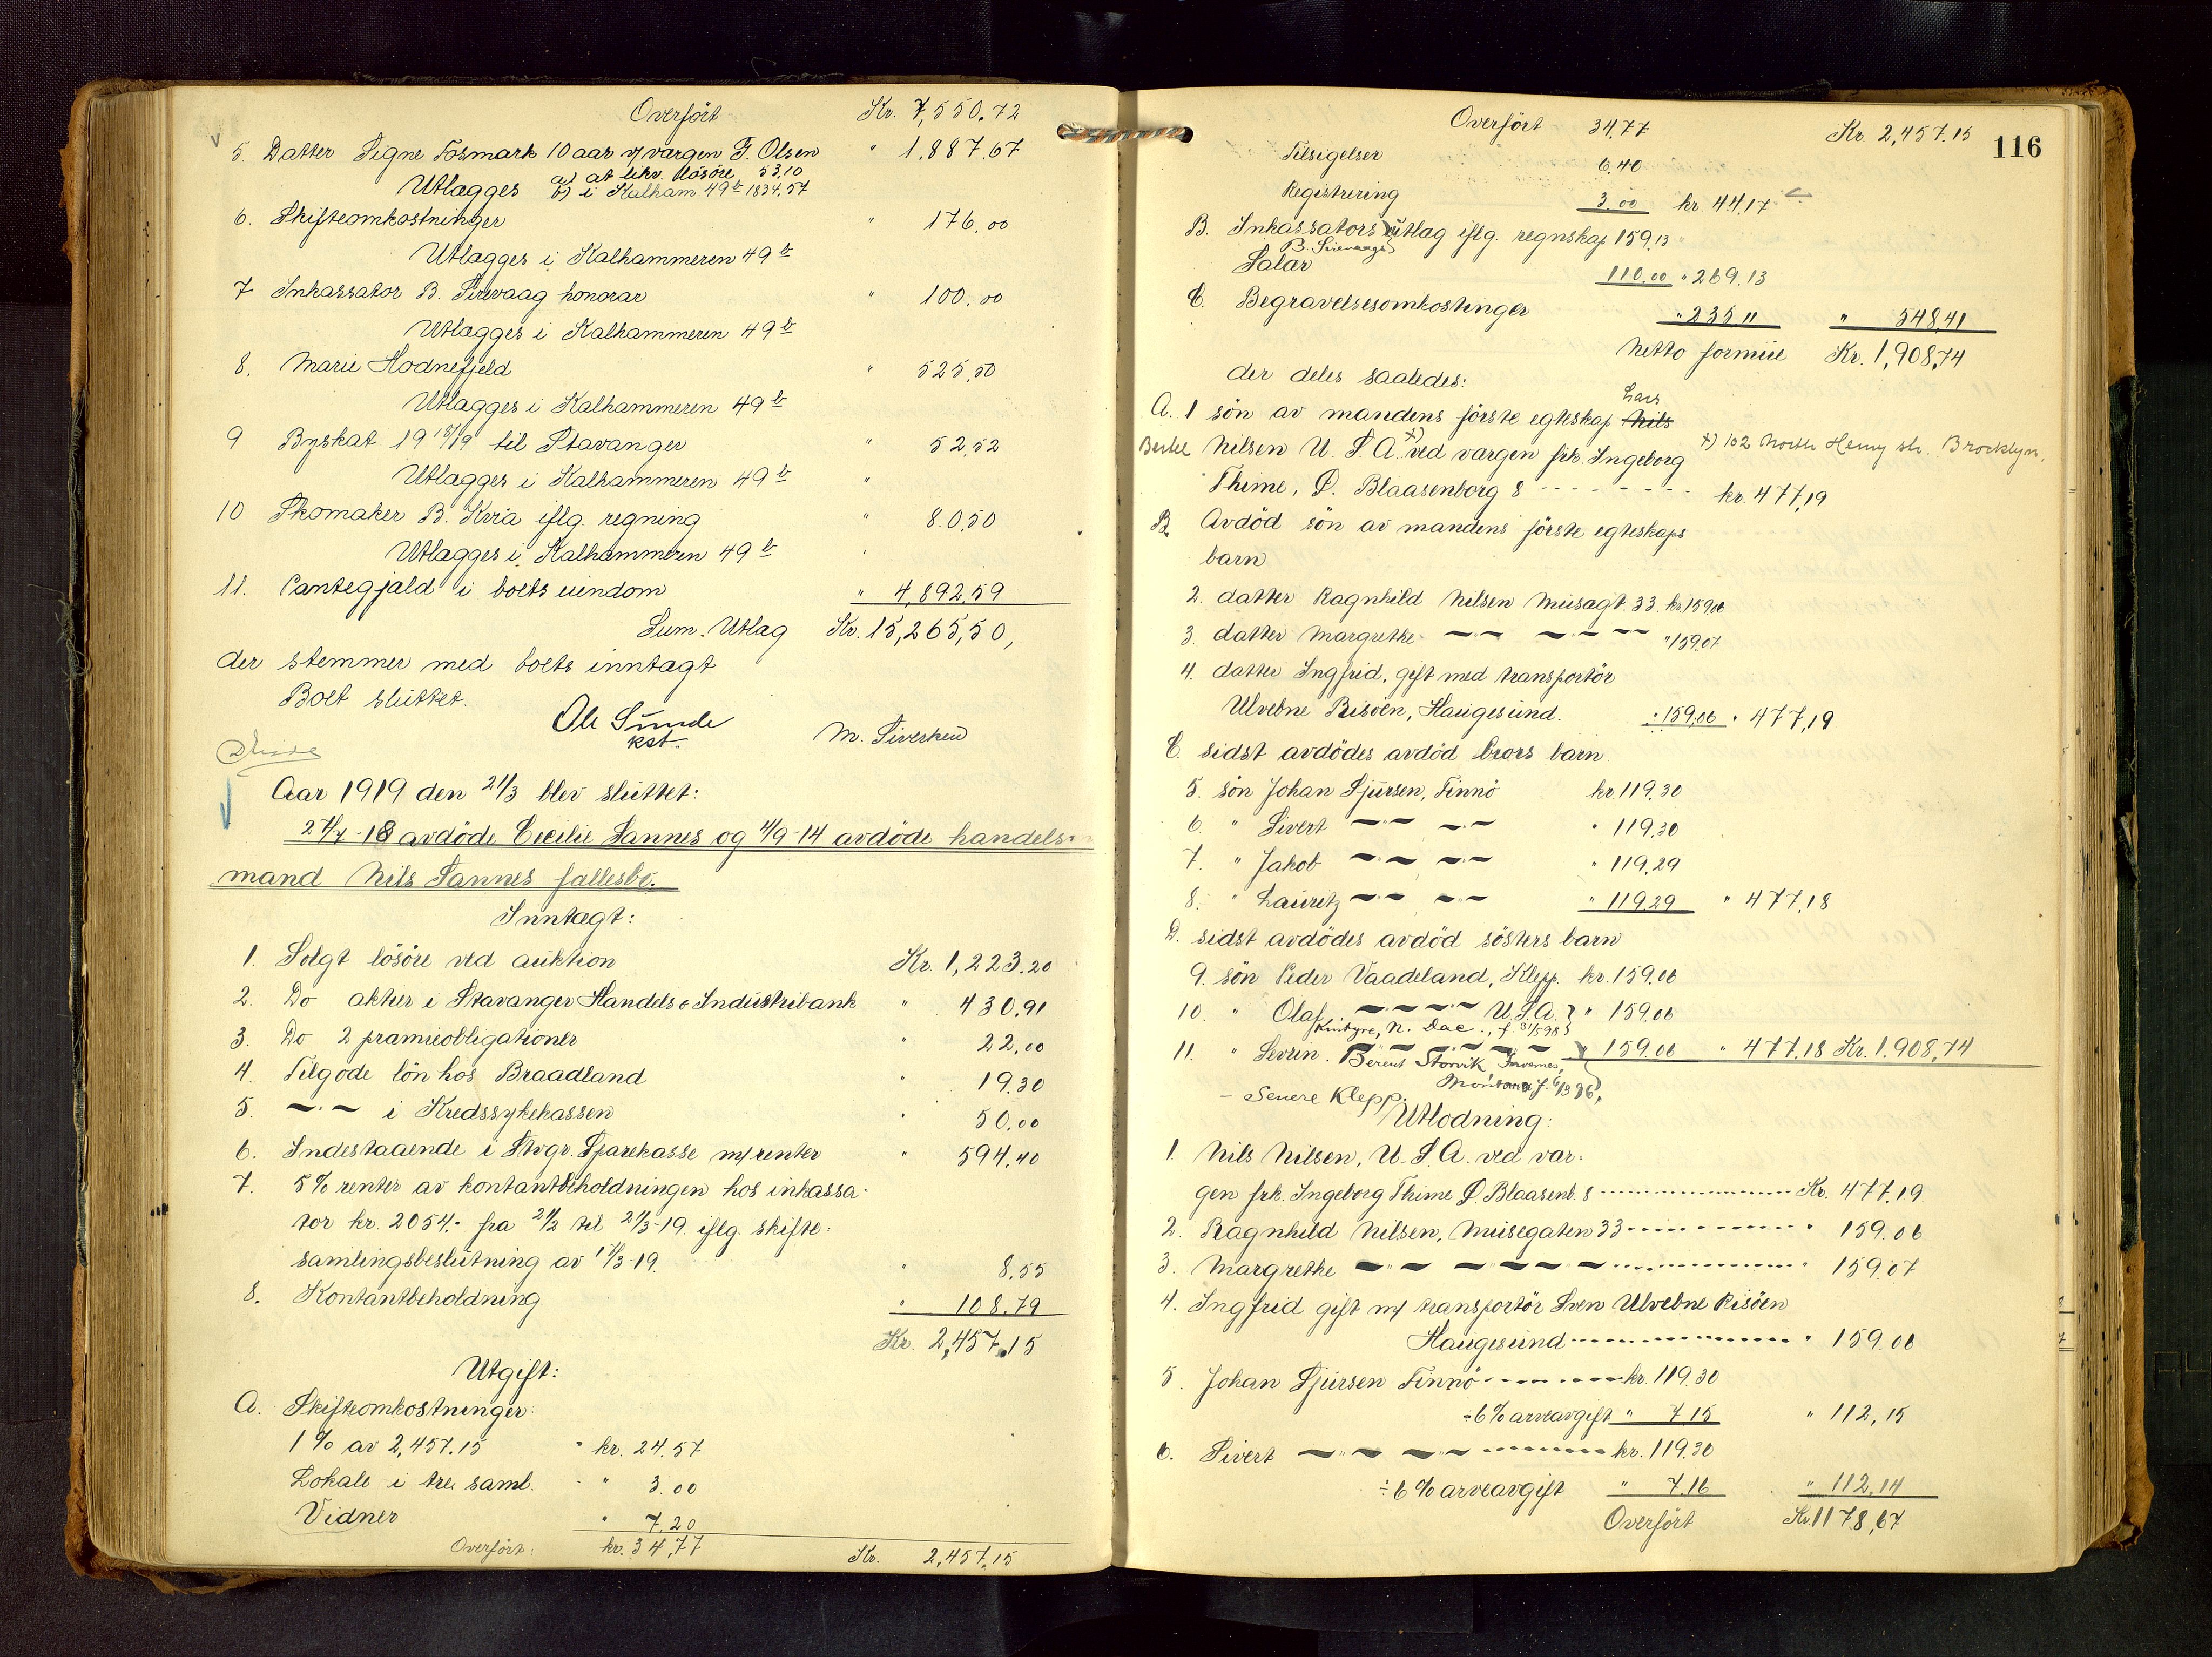 Overført Kr. 7,550.72
5. Datter Signe Fosmark 10 aar v/ vargen F. Olsen " 1,887.67
Utlægges a) at likv. lösöre 53.10
b) i Kalham. 49 b 1834.57
6. Skifteomkostninger " 176.00
Utlægges i Kalhammeren 49 b
7 Inkassator B. Sirevaag honorar " 100.00
Utlægges i Kalhammeren 49 b
8. Marie Hodnefjeld " 525.50
Utlægges i Kalhammeren 49 b
9 Byskat 1918/19 til Stavanger " 52.52
Utlægges i Kalhammeren 49 b "
10 Skomaker B. Kvia iflg. regning " 80.50
Utlægges i Kalhammeren 49 b
11. Pantegjæld i boets eiendom " 4,892.59
Sum. Utlæg Kr. 15,265,50,
der stemmer med boets inntægt
Boet sluttet.
Ole Sunde
kst.
M. Siversen
Aar 1919 den 21/3 blev sluttet:
27/7-18 avdöde Cecilie Sannes og 4/9-14 avdöde handels-
mand Nils Sannes fællesbo.
Inntægt:
1. Solgt lösöre ved auktion Kr. 1,223.20
2. Do aktier i Stavanger Handels & Industribank " 430.91
3. Do 2 præmieobligationer " 22.00
4. Tilgode lön hos Braadland " 19.30
5. —"— i Kredssykekassen " 50.00
6. Indestaaende i Stvgr. Sparekasse m/ renter " 594.40
7. 5% renter av kontantbeholdningen hos inkassa-
tor kr. 2054.- fra 21/2 til 21/3-19. iflg. skifte-
samlingsbeslutning av 17/3-19. " 8.55
8. Kontantbeholdning " 108.79
Kr. 2,457.15
Utgift:
A. Skifteomkostninger:
1% av 2,457.15 kr. 24.57
Lokale i tre saml. " 3.00
Vidner " 7.20
Overført: kr. 34,77 Kr. 2,457.15
116
Overført 34.77 Kr. 2,457.15
Tilsigelser 6.40
Registrering 3.00 kr. 44.17
B. Inkassators utlæg iflg. regnskap 159.13
B. Sirevaags
Salær 110.00 " 269.13
C. Begravelsesomkostninger " 235 " " 548.41
Netto formue Kr. 1,908.74
der deles saaledes:
Lars
A. 1 sön av mandens förste egteskap Nils
Bertel Nilsen U. S. A. x) ved vargen frk. Ingeborg x) 102 North Henry str. Brooklyn.
Thime, Ø. Blaasenborg 8 - - - - - - - - kr. 477.19
B. Avdöd sön av mandens förste egteskaps
barn
2. datter Ragnhild Nilsen Musægt. 33. kr. 159.06
3. datter Margrethe —"— —"— " 159.07
4. datter Ingfrid, gift med transportör
Ulvebne Risöen, Haugesund. " 159.06 " 477,19
C. sidst avdödes avdöd brors barn
5. sön Johan Sjursen, Finnö kr. 119.30
6. " Sivert —"— —"— " 119.30
7. " Jakob —"— —"— " 119.29
8. " Lauritz —"— —"— " 119.29 " 477.18
D. sidst avdödes avdöd sösters barn
9. sön Peder Vaadeland, Klepp. kr. 159.06
10. " Olaf —"— U.S.A. " 159.06
Kintyre, N. Dac., f. 31/5 98
11. " Sevrin. —"— —"— " 159.06 " 477.18 Kr. 1.908,74
Berent Storvik, Inverness,
Montana f. 6/3 96,
- Senere Klepp.
Utlodning:
1. Nils Nilsen, U. S. A. ved vær-
gen frk. Ingeborg Thime Ø. Blaasenb. 8 ---------- Kr. 477.19
2. Ragnhild Nilsen, Musegaten 33 ---------- " 159.06
3. Margrethe —"— —"— ---------- " 159.07
4. Ingfrid gift m/ transportör Sven Ulvebne Risöen
Haugesund ---------- " 159.06
5. Johan Sjursen Finnö ------ kr. 119.30
÷ 6% arveavgift " 7.15 " 112,15
6. Sivert —"— —"— ------ kr. 119.30
÷ 6% arveavgift " 7.16 " 112.14
Overført Kr. 1178,67